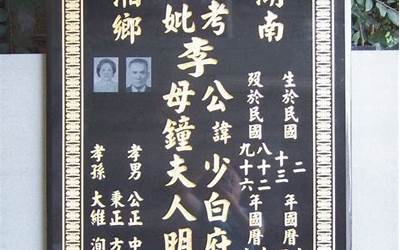 湖南
生於民國 二 年國曆
十三
歿於民國 八十二 年國曆
九十六
考 李 公諱少白府
妣 母鐘夫人明
孝男 公正 中
秉正 方
孝孫 大維 洵
湘鄉